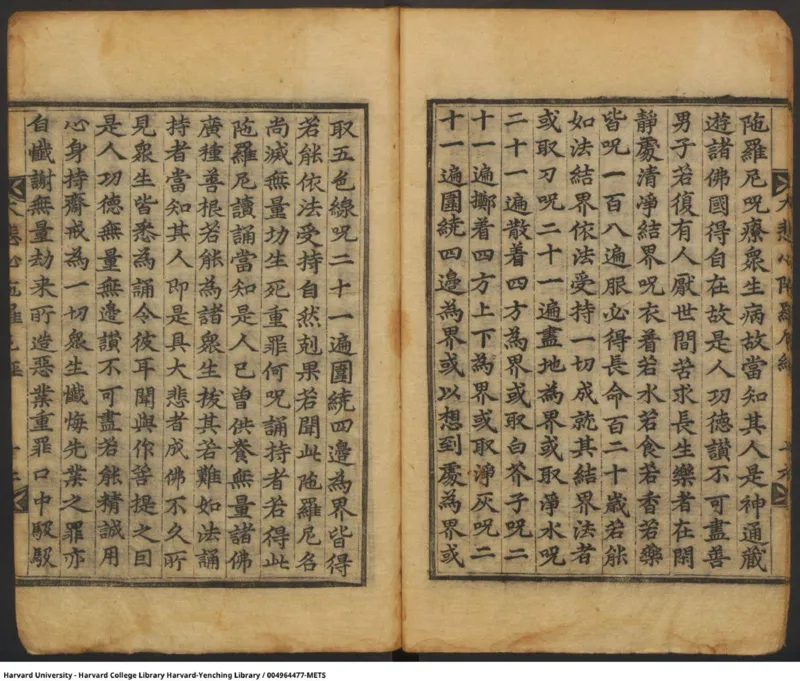 陁羅尼呪療衆生病故當知其人是神通藏
遊諸佛國得自在故是人功德讃不可盡善
男子若復有人厭世間苦求長生樂者在閑
靜處清淨結界呪衣着若水若食若香若藥
皆呪一百八遍服必得長命百二十歲若能
如法結界依法受持一切成就其結界法者
或取刀呪二十一遍畫地爲界或取淨水呪
二十一遍散着四方爲界或取白芥子呪二
十一遍擲着四方上下爲界或取淨灰呪二
十一遍圍繞四邊爲界或以想到處爲界或
取五色線呪二十一遍圍繞四邊爲界皆得
若能依法受持自然剋果若聞此陁羅尼名
尚滅無量劫生死重罪何呪誦持者若得此
陁羅尼讀誦當知是人已曾供養無量諸佛
廣種善根若能爲諸衆生拔其苦難如法誦
持者當知其人即是具大悲者成佛不久所
見衆生皆悉爲誦令彼耳聞與作菩提之因
是人功德無量無邊讃不可盡若能精誠用
心身持齋戒爲一切衆生懺悔先業之罪亦
自懺謝無量劫来所造惡業重罪口中馺馺
大悲心陁羅尼經
Harvard University - Harvard College Library Harvard-Yenching Library / 004964477-METS